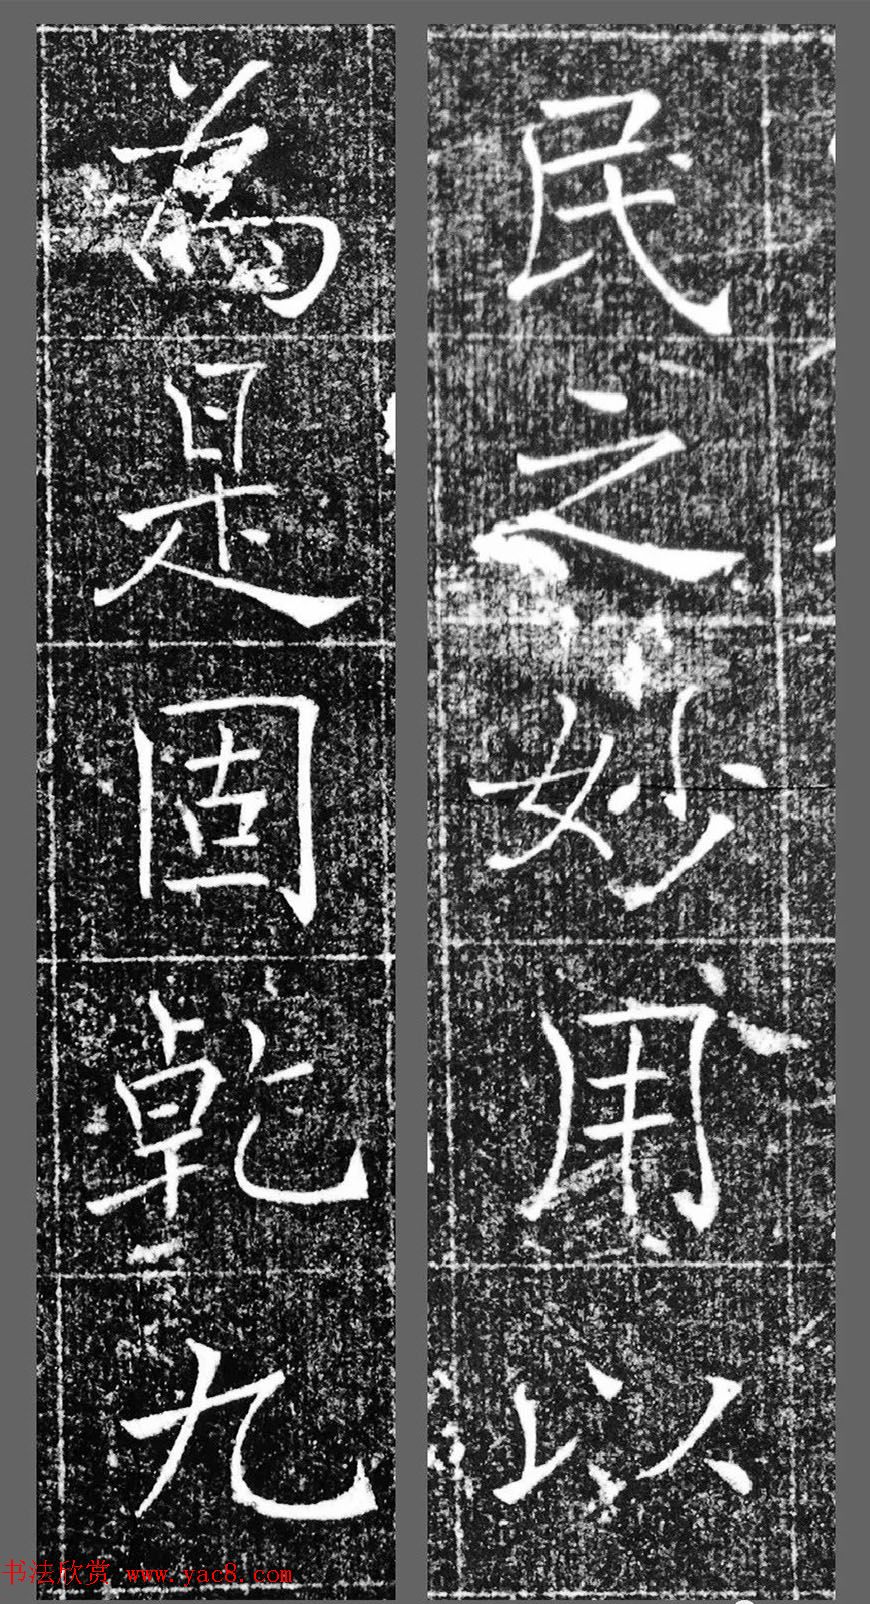 民之妙用以
為是固乾九
书法欣赏 www.yac8.com